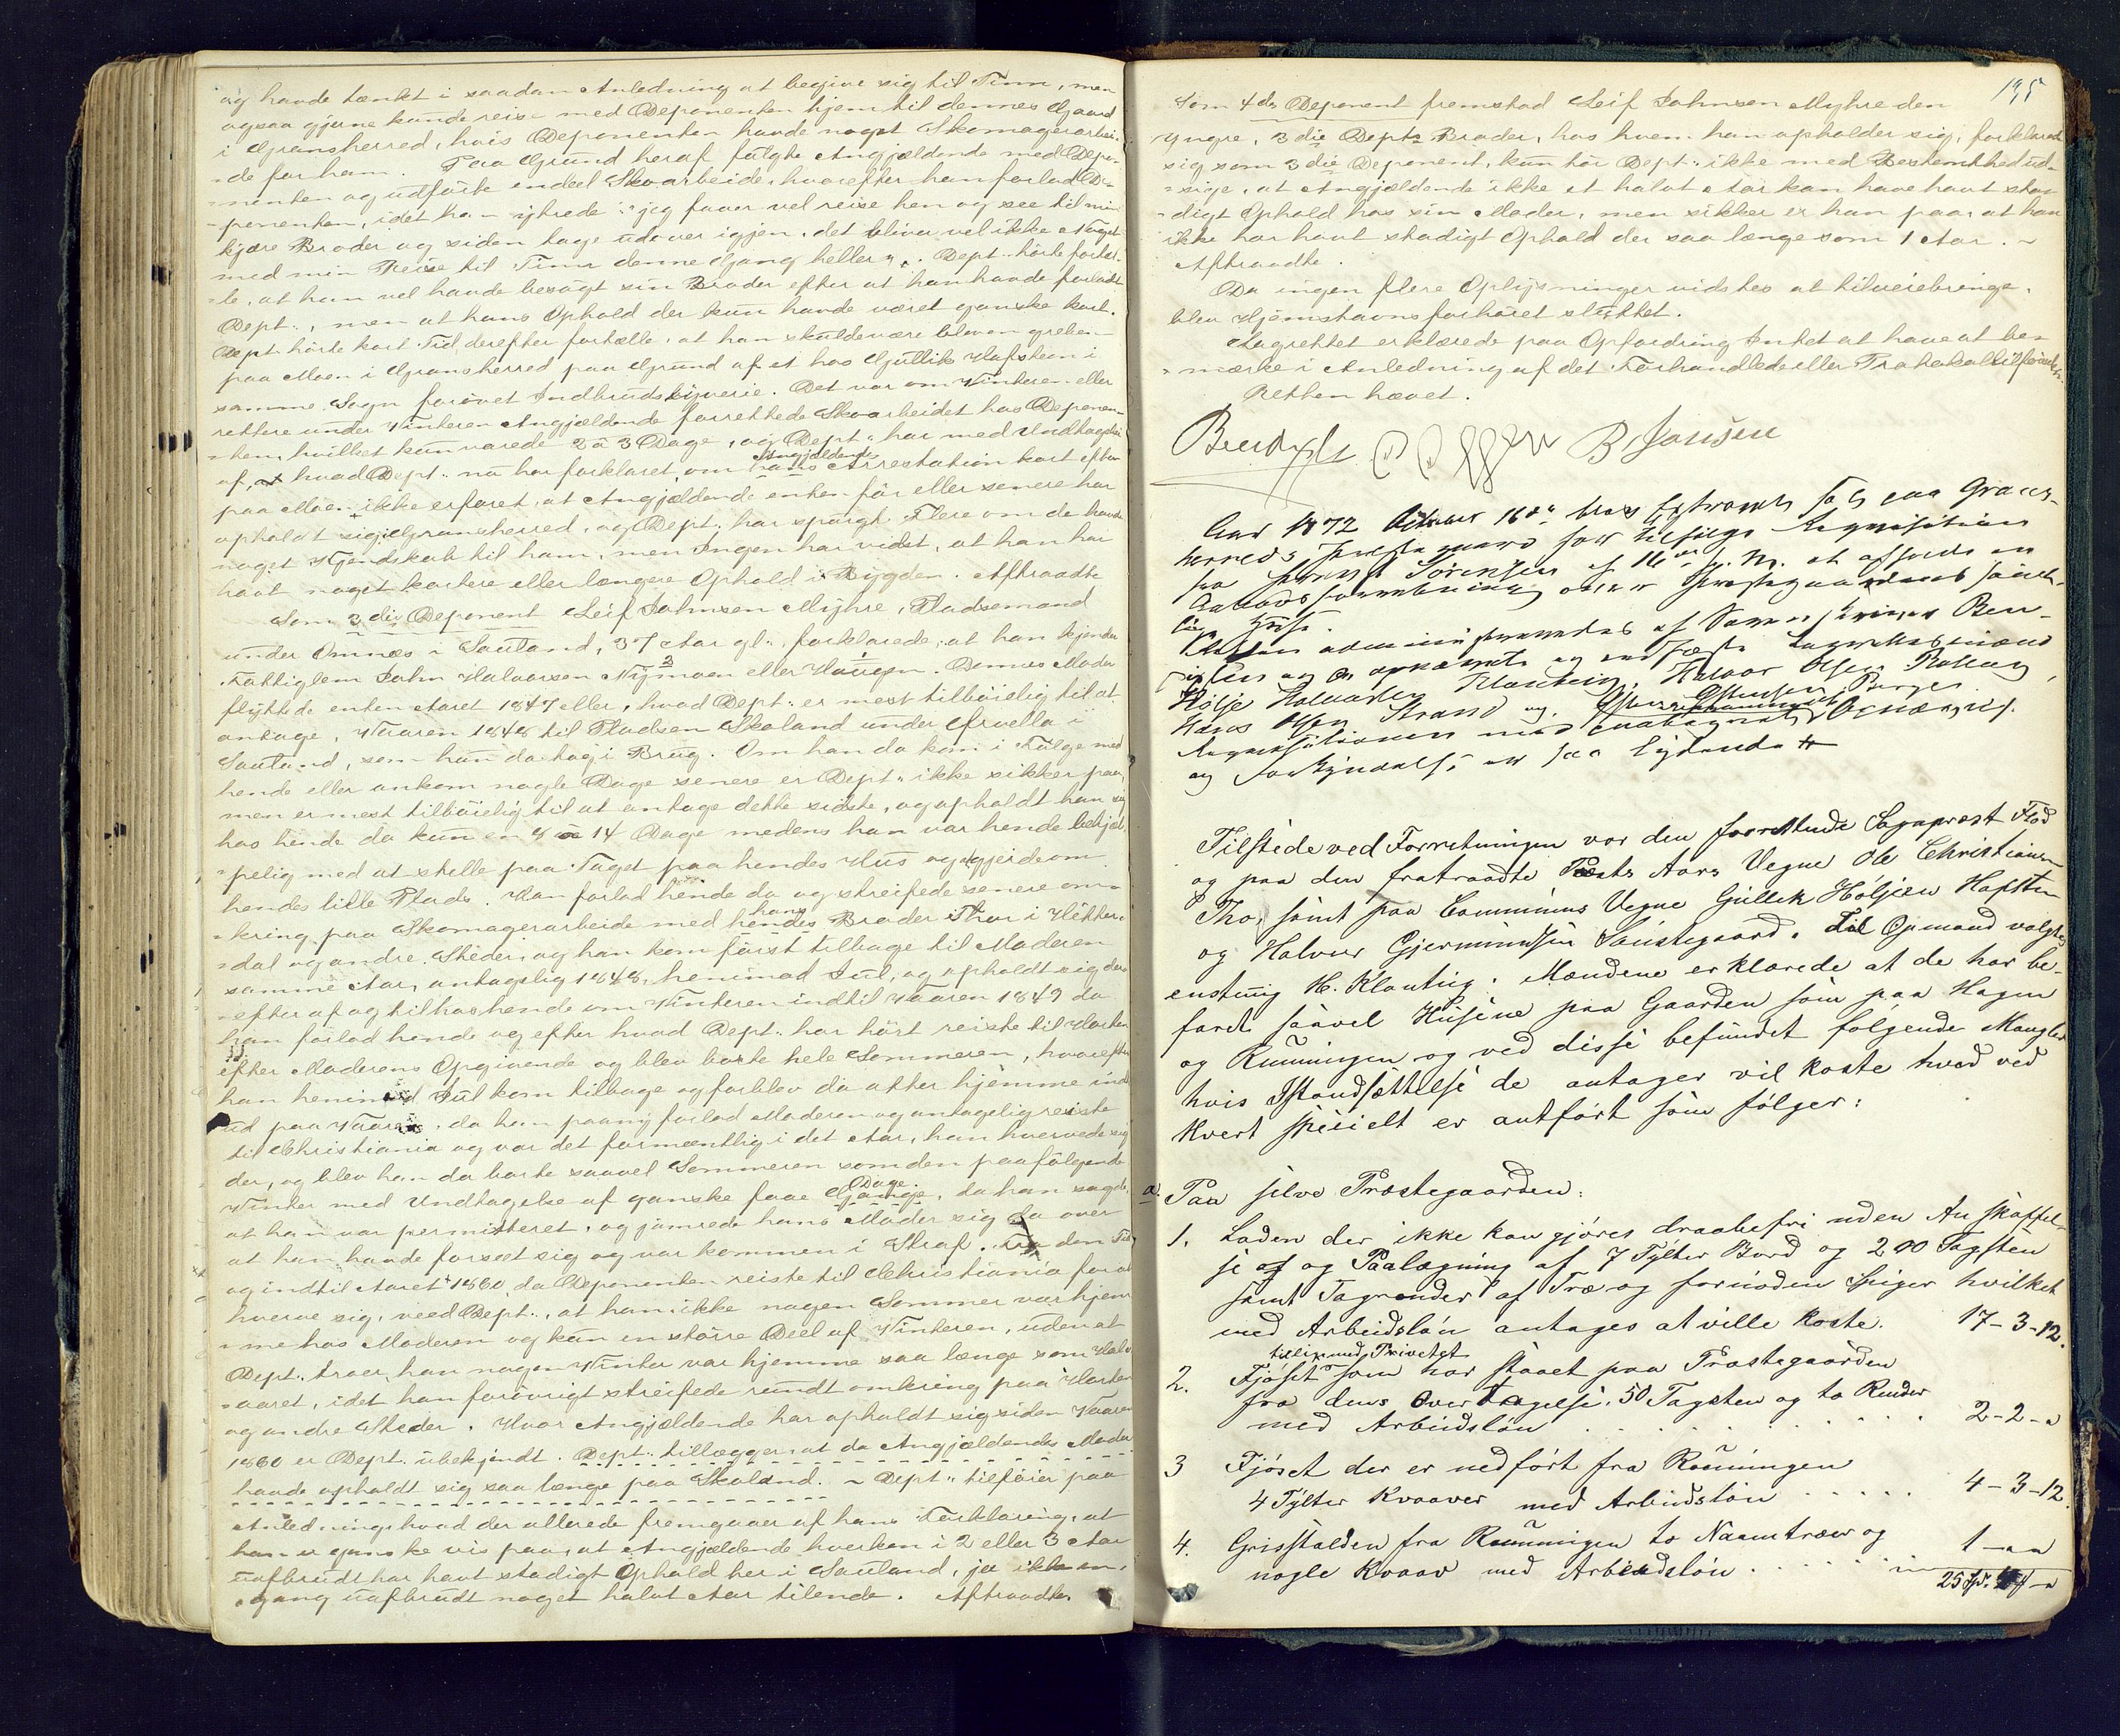 og havde tænkt i saadan Anledning at begive sig til Tinn, men
ogsaa gjerne kunde reise med Deponenten hjem til dennes Gaard
i Gransherred, hvis Deponenten havde noget Skomagerarbei-
-de for ham. Paa Grund heraf fulgte Angjældende med Depo-
-nenten og udførte endeel Skoarbeide, hvorefter han forlod De-
-ponenten, idet han ytrede: "jeg faaer vel reise hen og see til min
kjære Broder og siden tage udover igjen, det bliver vel ikke Noget
med min Reise til Tinn denne Gang heller". Dept. hørte fortæl-
-le, at han vel havde besøgt sin Broder efter at han havde forladt
Dept., men at hans Ophold der kun havde været ganske kort.
Dept. hørte kort Tid derefter fortælle, at han skulde være bleven greben
paa Moen i Gransherred paa Grund af et hos Gullik Hafsteen i
samme Sogn forøvet Indbrudstyverie. Det var om Vinteren eller
rettere under Vinteren Angjældende forrettede Skoarbeidet hos Deponen-
-ten, hvilket kun varede 2 à 3 Dage, og Dept. har med Undtagelse
af, hvad Dept. nu har forklaret om hans Angjældendes Arrestation kort efter
paa Moen ikke erfaret, at Angjældende enten før eller senere har
opholdt sig i Gransherred, og Dept. har spurgt Flere om de havde
noget Kjendskab til ham, men Ingen har vidst, at han har
havt noget kortere eller længere Ophold i Bygden. Aftraadte
Som 3die Deponent Leif Johnsen Myhre, Pladsemand
under Omnæs i Sauland, 37 Aar gl., forklarede, at han kjender
Fattiglem John Halvorsen Nymoen eller Haugen. Dennes Moder
flyttede enten Aaret 1847 eller, hvad Dept. er mest tilbøielig til at
antage, Vaaren 1848 til Pladsen Skoland under Arvella i
Sauland, som hun da tog i Brug. Om han da kom i Følge med
hende eller ankom nogle Dage senere er Dept. ikke sikker paa,
men er mest tilbøielig til at antage dette sidste, og opholdt han sig
hos hende da kun en 8 à 14 Dage medens han var hende behjæl-
-pelig med at stelle paa Taget paa hendes Hus og gjerde om
hendes lille Plads. Han forlod hende da og streifede senere om-
-kring paa Skomagerarbeide med hendes hans Broder Thor i Hitter-
-dal og andre Steder, og han kom først tilbage til Moderen
samme Aar, antagelig 1848, henimod Jul, og opholdt sig der-
-efter af og til hos hende om Vinteren indtil Vaaren 1849 da
han forlod hende og efter hvad Dept. har hørt reiste til Horten
efter Moderens Opgivende og blev borte hele Sommeren, hvorefter
han henimod Jul kom tilbage og forblev da atter hjemme ind
ud paa Vaaren, da han paany forlod Moderen og antagelig reiste
til Christiania og var det formeentlig i det Aar, han hvervede sig
der, og blev han da borte saavel Sommeren som den paafølgende
Vinter med Undtagelse af ganske faae Gange Dage, da han sagde
at han var permitteret, og jamrede hans Moder sig da over
at han havde forseet sig og var kommen i Straf. Fra den Tid
og indtil Aaret 1860, da Deponenten reiste til Christiania for at
hverve sig, veed Dept., at han ikke nogen Sommer var hjem-
-me hos Moderen og kun en større Deel af Vinteren, uden at
Dept. troer, han nogen Vinter var hjemme saa længe som Halv-
-aaret, idet han forøvrigt streifede rundt omkring paa Horten
og andre Steder. Hvor Angjældende har opholdt sig siden Vaaren
1860 er Dept. ubekjendt. Dept. tillægger at da Angjældendes Moder
havde opholdt sig saa længe paa Skoland. - Dept. tilføier paa
Anledning, hvad der allerede fremgaaer af hans Forklaring, at
han er ganske vis paa, at Angjældende hverken i 2 eller 3 Aar
uafbrudt har havt stadigt Ophold her i Sauland, ja ikke en-
-gang uafbrudt noget halvt Aar tilende. Aftraadte.
195
Som 4de Deponent fremstod Leif Johnsen Myhre den
yngre, 3die Depts Broder, hos hvem han opholder sig, forklarede
sig som 3die Deponent, kun tør Dept. ikke med Bestemthed ud-
-sige, at Angjældende ikke et halvt Aar kan have havt sta-
-digt Ophold hos sin Moder, men sikker er han paa, at han
ikke har havt stadigt Ophold der saa længe som 1 Aar. -
Aftraadte.
Da ingen flere Oplysninger vidstes at tilveiebringe,
blev Hjemstavnsforhøret sluttet.
Lagrettet erklærede paa Opfordring Intet at have at be-
-mærke i Anledning af det Forhandlede eller Protokoltilførselen.
Retten hævet.
B Jansen
Aar 1872 Oktober 16de blev Extraret sat paa Grans-
herreds Præstegaard for ifølge Requisition
fra Sørensen af 16de at afholde en
Aabodsforretning over Præstegaardens samt-
lige Huse.
Retten administreredes af Sorenskriver Ben-
og de opnævnte og edfæste Lagrettesmænd
Høljé Halvorsen Klonteig, Halvor Olsen
Hans Olsen Strand og
Requisitionen med paategnet Opnævnelse
og Forkyndelse er saa lydende #
Tilstede ved Forretningen var den forrettende Sognepræst Flod
og paa den fratraadte Præsts Aars Vegne Ole Christiansen
Tho, samt paa Communens Vegne Gullik Høljesen Hafsten
og Halvor Gjermundsen Saustegaard. Til Opmand valgtes
enstemmig H. Klonteig. Mændene erklærede at de har be-
faret saavel Husene paa Gaarden som paa Hagen
og Rønningen og ved disse befundet følgende Mangler
hvis Istandsættelse de antager vil koste hvad ved
hvert specielt er antført som følger:
a. Paa selve Præstegaarden:
1. Laden der ikke kan gjøres draabefri uden Anskaffel-
se af og Paalægning af 7 Tylter Bord og 200 Tagsten
samt Tagrender af Træ og fornøden Spiger hvilket
med Arbeidsløn antages at ville koste. 17-3-12.
2. Fjøset tilligemed Privetet som har staaet paa Præstegaarden
fra dens Overtagelse. 50 Tagsten og to Render
med Arbeidsløn . . . . . . 2-2-"
3 Fjøset der er nedført fra Rønningen
4 Tylter Kvaaver med Arbeidsløn . . . . . 4-3-12.
4. Grisstalden fra Rønningen to Naamtræer og 1-"-"
nogle Kvaav med Arbeidsløn . . . . .
25 Spd.